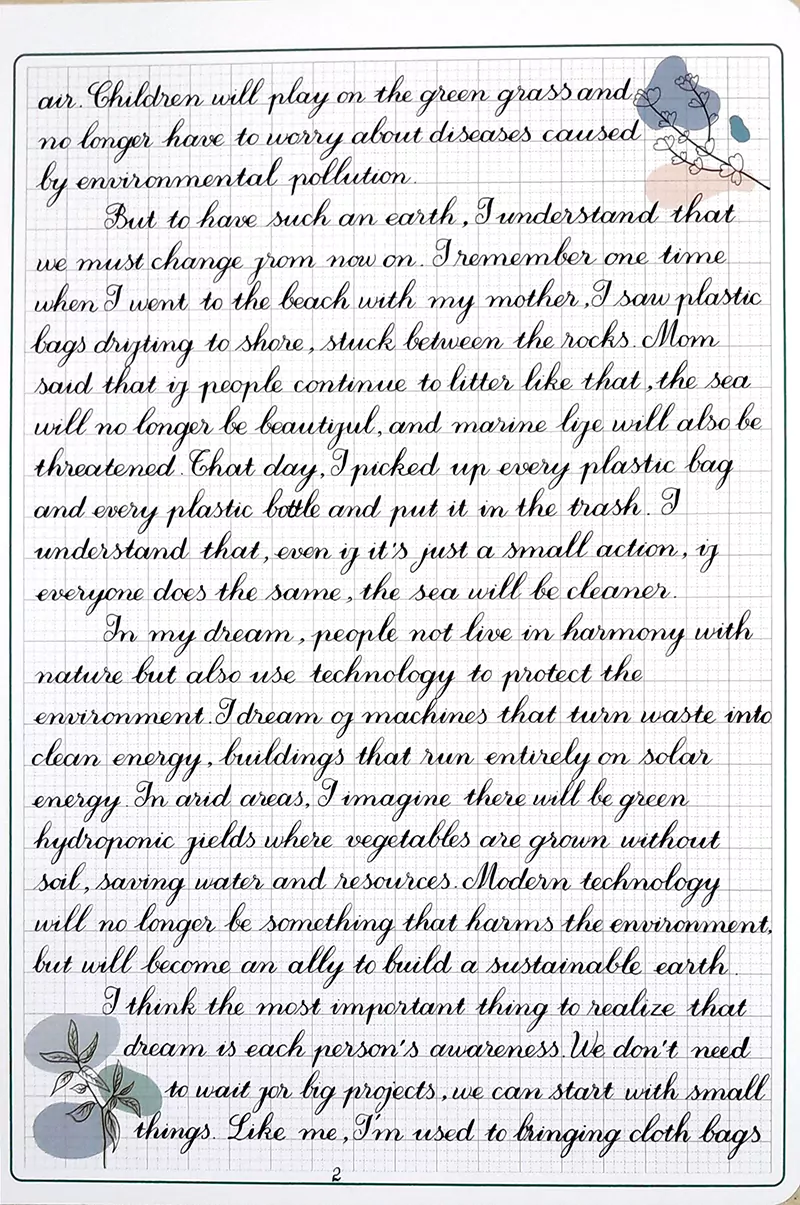 air. Children will play on the green grass and
no longer have to worry about diseases caused
by environmental pollution.
But to have such an earth, I understand that
we must change from now on. I remember one time
when I went to the beach with my mother, I saw plastic
bags drifting to shore, stuck between the rocks. Mom
said that if people continue to litter like that, the sea
will no longer be beautiful, and marine life will also be
threatened. That day, I picked up every plastic bag
and every plastic bottle and put it in the trash. I
understand that, even if it's just a small action, if
everyone does the same, the sea will be cleaner.
In my dream, people not live in harmony with
nature but also use technology to protect the
environment. I dream of machines that turn waste into
clean energy, buildings that run entirely on solar
energy. In arid areas, I imagine there will be green
hydroponic fields where vegetables are grown without
soil, saving water and resources. Modern technology
will no longer be something that harms the environment,
but will become an ally to build a sustainable earth.
I think the most important thing to realize that
dream is each person's awareness. We don't need
to wait for big projects, we can start with small
things. Like me, I'm used to bringing cloth bags
2